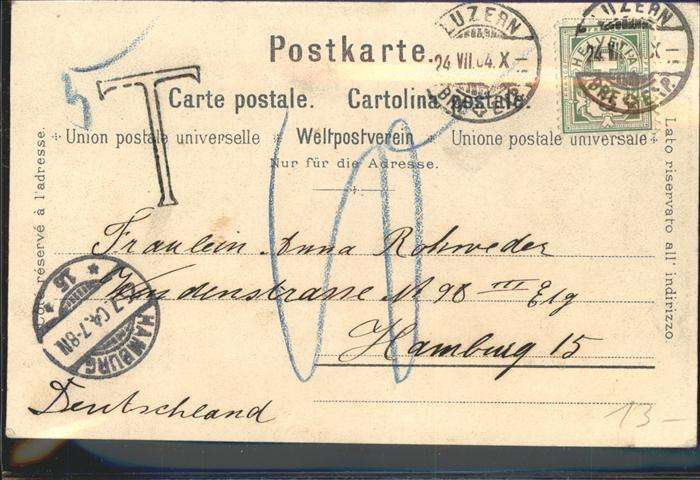 LUZERN
24 VII.04.X
LUZERN
HELVETIA
Postkarte.
Carte postale. Cartolina postale.
Union postale universelle Weltpostverein Unione postale universale
Nur für die Adresse.
T
5
10
Fräulein Anna Rohweder
Wendenstrasse N 98 III Etg
Hamburg 15
Deutschland
HAMBURG
15
réservé à l'adresse.
Lato riservato all' indirizzo.
13-